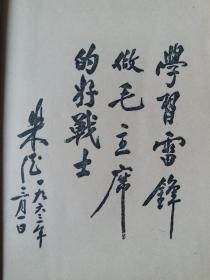 學習雷鋒
做毛主席
的好戰士
朱德 一九六三年
二月一日